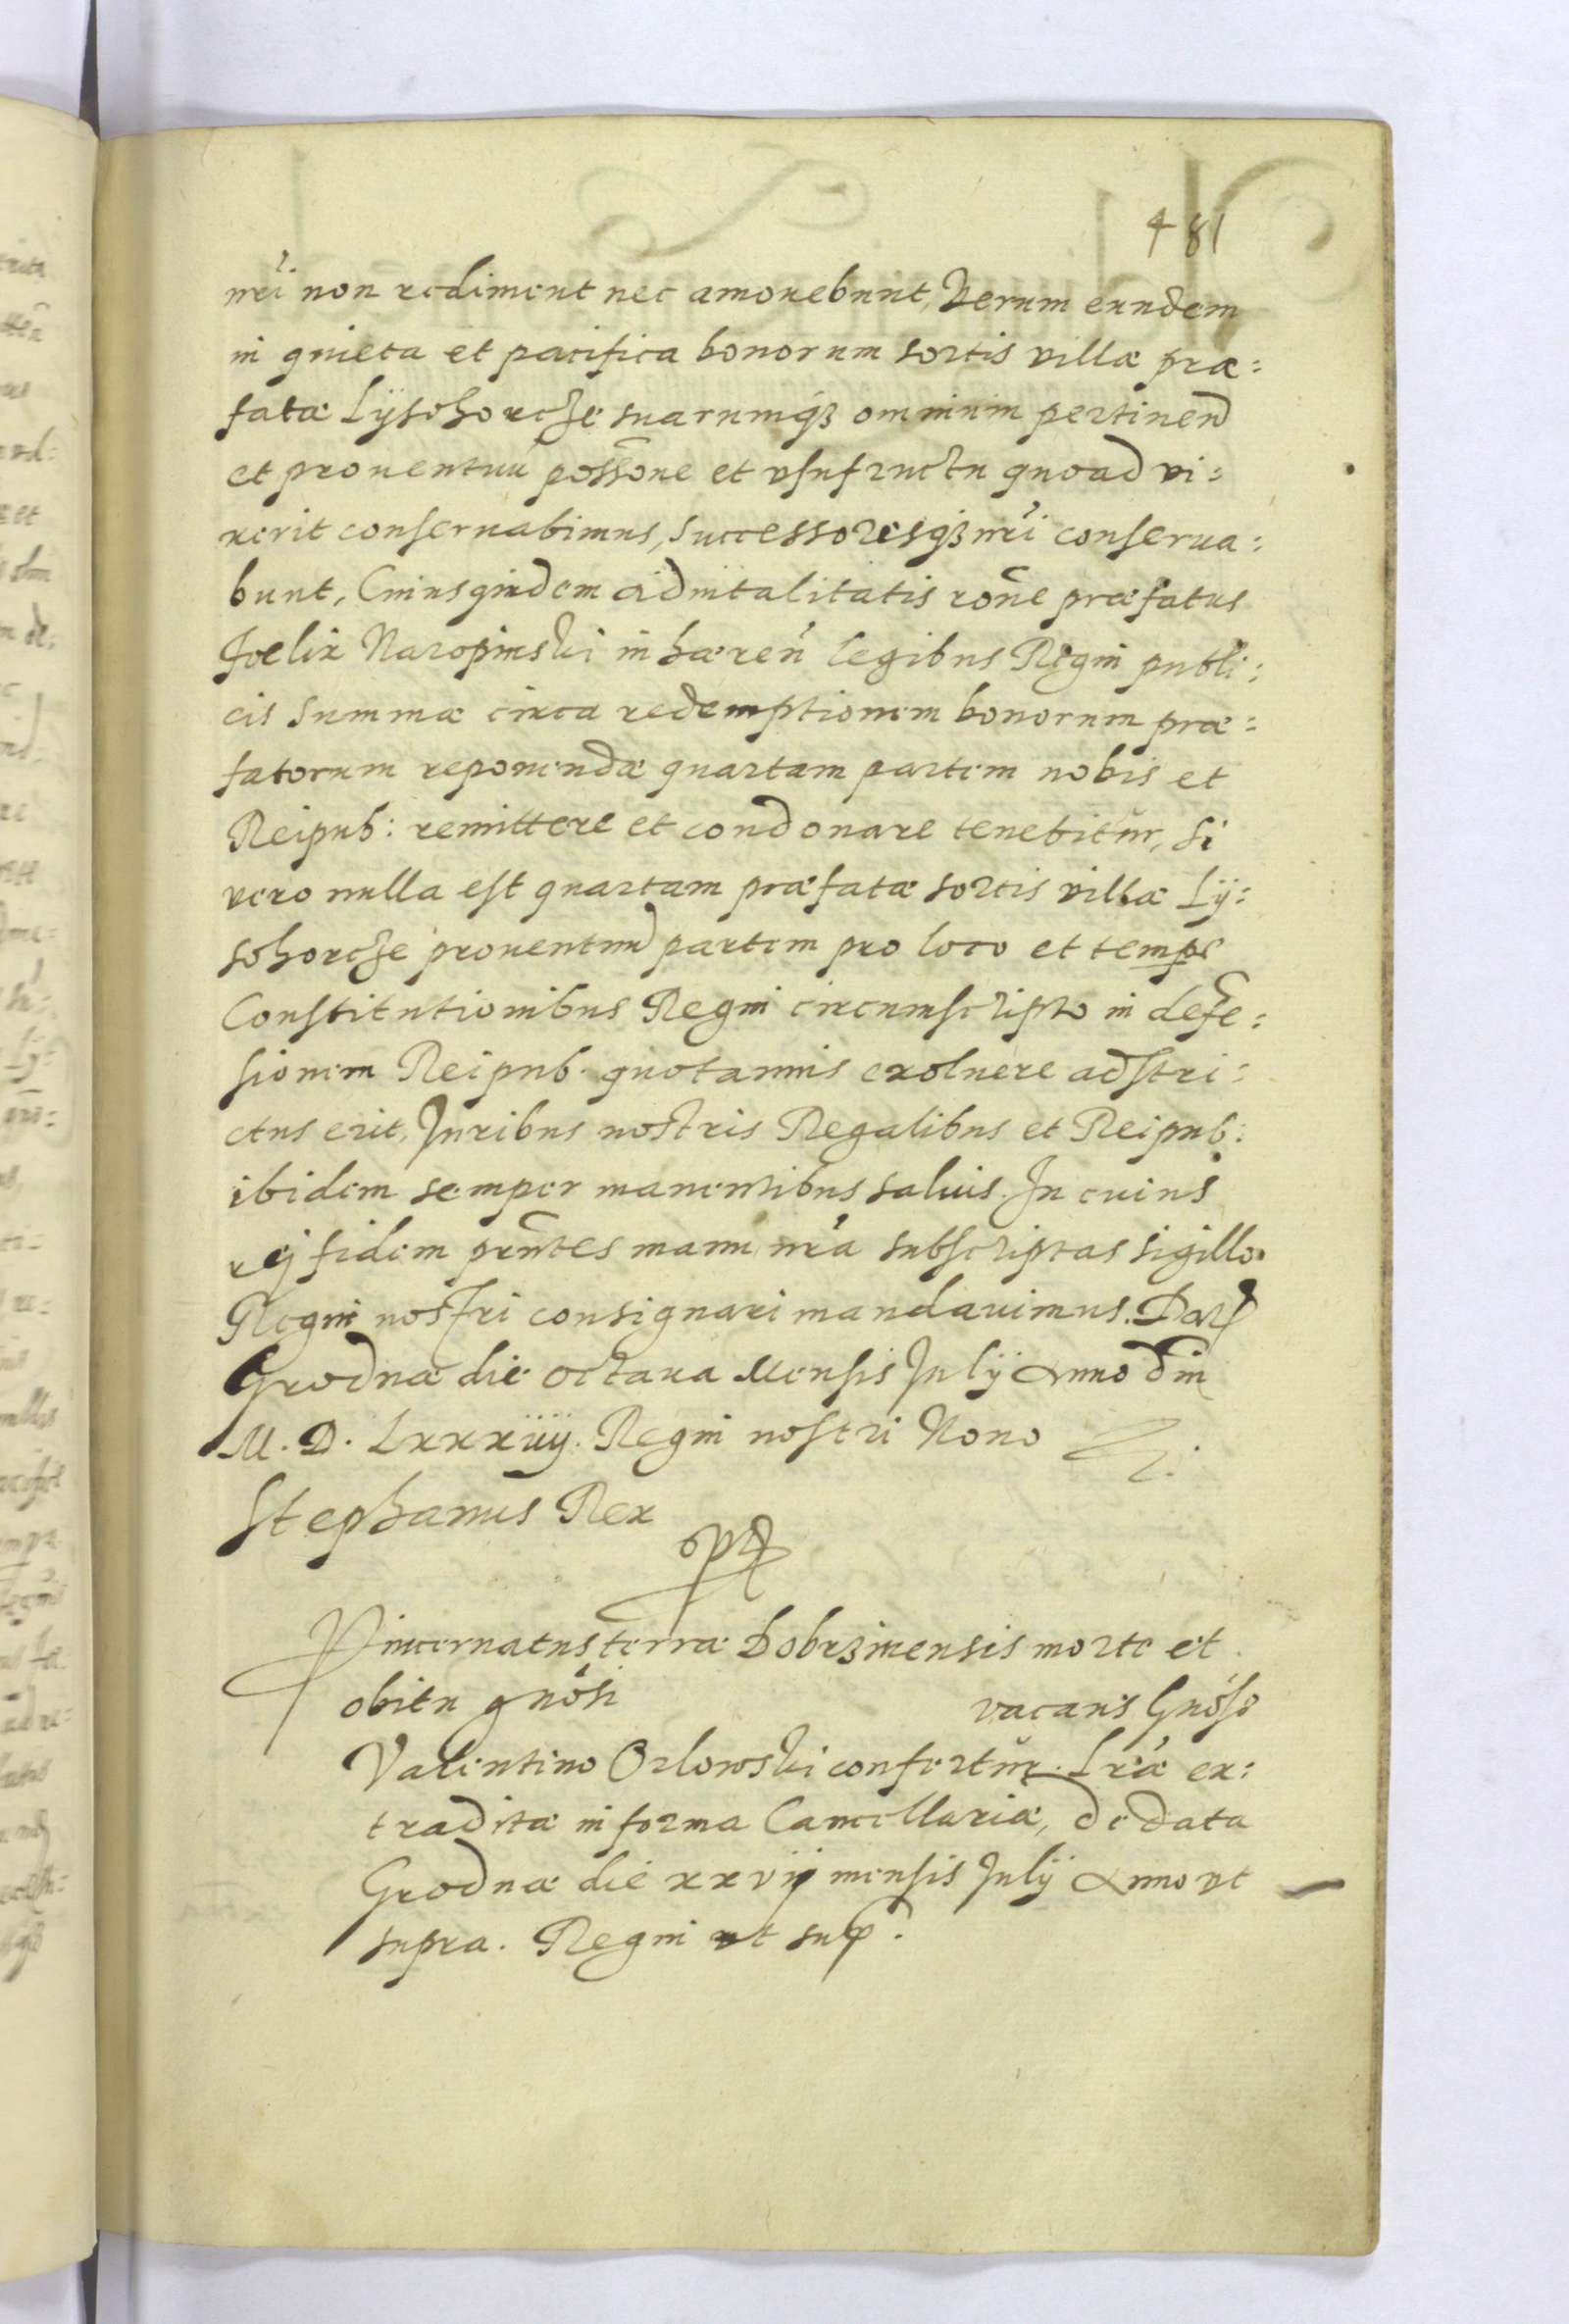 481
nrĩ non rediment nec amouebunt, Verum eundem
in quieta et pacifica bonorum sortis villæ præ:
fatæ Lÿsohorcze suarumqꝫ omnium pertinen
et prouentuũ possõne et vsufructu quoad vi:
xerit conseruabimus, Successoresqꝫ nrĩ conserua:
bunt, Cuiusquidem aduitalitatis rõne præfatus
Foelix Naropinski inhæreñ legibus Regni publi:
cis summæ circa redemptionem bonorum præ:
fatorum reponendæ quartam partem nobis et
Reipub: remittere et condonare tenebitur, si
vero nulla est quartam præfatæ sortis villæ Lÿ:
sohorcze prouentuum partem pro loco et tempe
Constitutionibus Regni circumscripto in defẽ:
sionem Reipub. quotannis exoluere adstri:
ctus erit, Iuribus nostris Regalibus et Reipub:
ibidem semper manentibus saluis. In cuius
rej fidem prñtes manu nrã subscriptas sigillo
Regni nostri consignari mandauimus. Dat
Grodnæ die octaua Mensis Julÿ Anno dni
M. D. Lxxxiiij. Regni nostri Nono
Stephanus Rex
Pincernatus terræ Dobrzinensis morte et
obitu gnõsi vacans Gnõso
Valentino Orlowski confertur. Lrãe ex:
traditæ in forma Cancellariæ, de data
Grodnæ die xxvij mensis Julÿ Anno vt
supra. Regni vt sup.